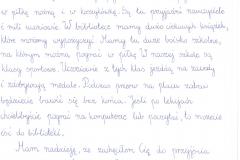 w piłkę nożną i w koszykówkę. Są tu przyjaźni nauczyciele
i mili uczniowie. W bibliotece mamy dużo ciekawych książek,
które możemy wypożyczyć. Mamy tu duże boisko szkolne,
na którym można pograć w piłkę. W naszej szkole są
klasy sportowe. Uczniowie z tych klas jeżdżą na zawody
i zdobywają medale. Podczas przerw na placu zabaw
będziecie bawić się bez końca. Jeśli po lekcjach
chcielibyście pograć na komputerze lub poczytać, to możecie
iść do biblioteki.
Mam nadzieję, że zachęciłam Cię do przyjścia